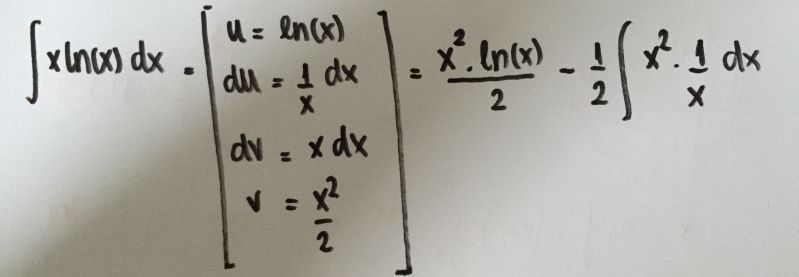 ∫ x ln(x) dx = [ u = ln(x)
du = 1/x dx
dv = x dx
v = x²/2 ] = x² · ln(x)/2 - 1/2 ∫ x² · 1/x dx